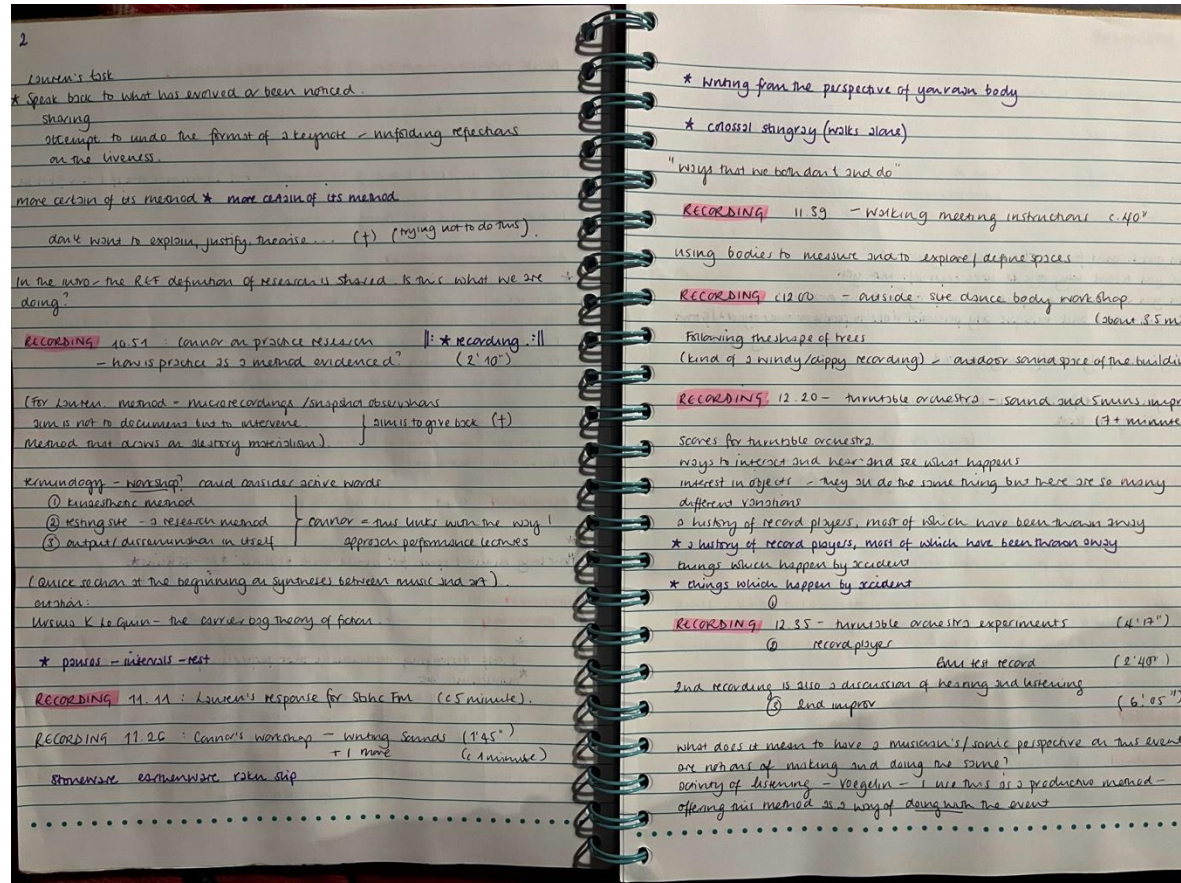 2
Lauren's task
* Speak back to what has evolved or been noticed.
sharing
attempt to undo the format of a keynote - unfolding reflections
on the liveness.
more certain of its method * more certain of its method
don't want to explain, justify, theorise.... (+) (trying not to do this).
In the intro - the REF definition of research is shared. Is this what we are
doing?
RECORDING 10.51 : Connor on practice research ||: * recording :||
- how is practice as a method evidenced? (2'10")
(For Lauren. method - microrecordings / snapshot observations
aim is not to document but to intervene } aim is to give back (+)
method that draws on aleatory materialism).
terminology - workshop? could consider active words
① kinaesthetic method
② testing site - a research method } Connor = this links with the way I
③ output/dissemination in itself approach performance lectures
(Quick section at the beginning on syntheses between music and art).
citation:
Ursula K Le Guin - the carrier bag theory of fiction.
* pauses - intervals - rest
RECORDING 11.11 : Lauren's response for Fm (c5 minute).
RECORDING 11.26 : Connor's workshop - writing sounds (1'45")
+ 1 more (c1minute)
stoneware earthenware raku slip
* writing from the perspective of your own body
* colossal stingray (walks alone)
"ways that we both don't and do"
RECORDING 11.39 - walking meeting instructions c.40"
using bodies to measure and to explore/define spaces
RECORDING c12.00 - outside site dance body workshop
(about 3.5 m
Following the shape of trees
(kind of a windy/clippy recording) - outdoor sound space of the buildin
RECORDING. 12.20 - turntable orchestra - sound and 5mins impr
(7+ minute
scores for turntable orchestra.
ways to interact and hear and see what happens
interest in objects - they all do the same thing but there are so many
different variations
a history of record players, most of which have been thrown away
* a history of record players, most of which have been thrown away
things which happen by accident
* things which happen by accident
①
RECORDING 12.35 - turntable orchestra experiments (4'17")
② record player
EMI test record (2'40")
2nd recording is also a discussion of hearing and listening
③ 2nd improv (6'05")
what does it mean to have a musician's/sonic perspective on this event
are notions of making and doing the same?
activity of listening - Voegelin - I use this as a productive method -
offering this method as a way of doing with the event